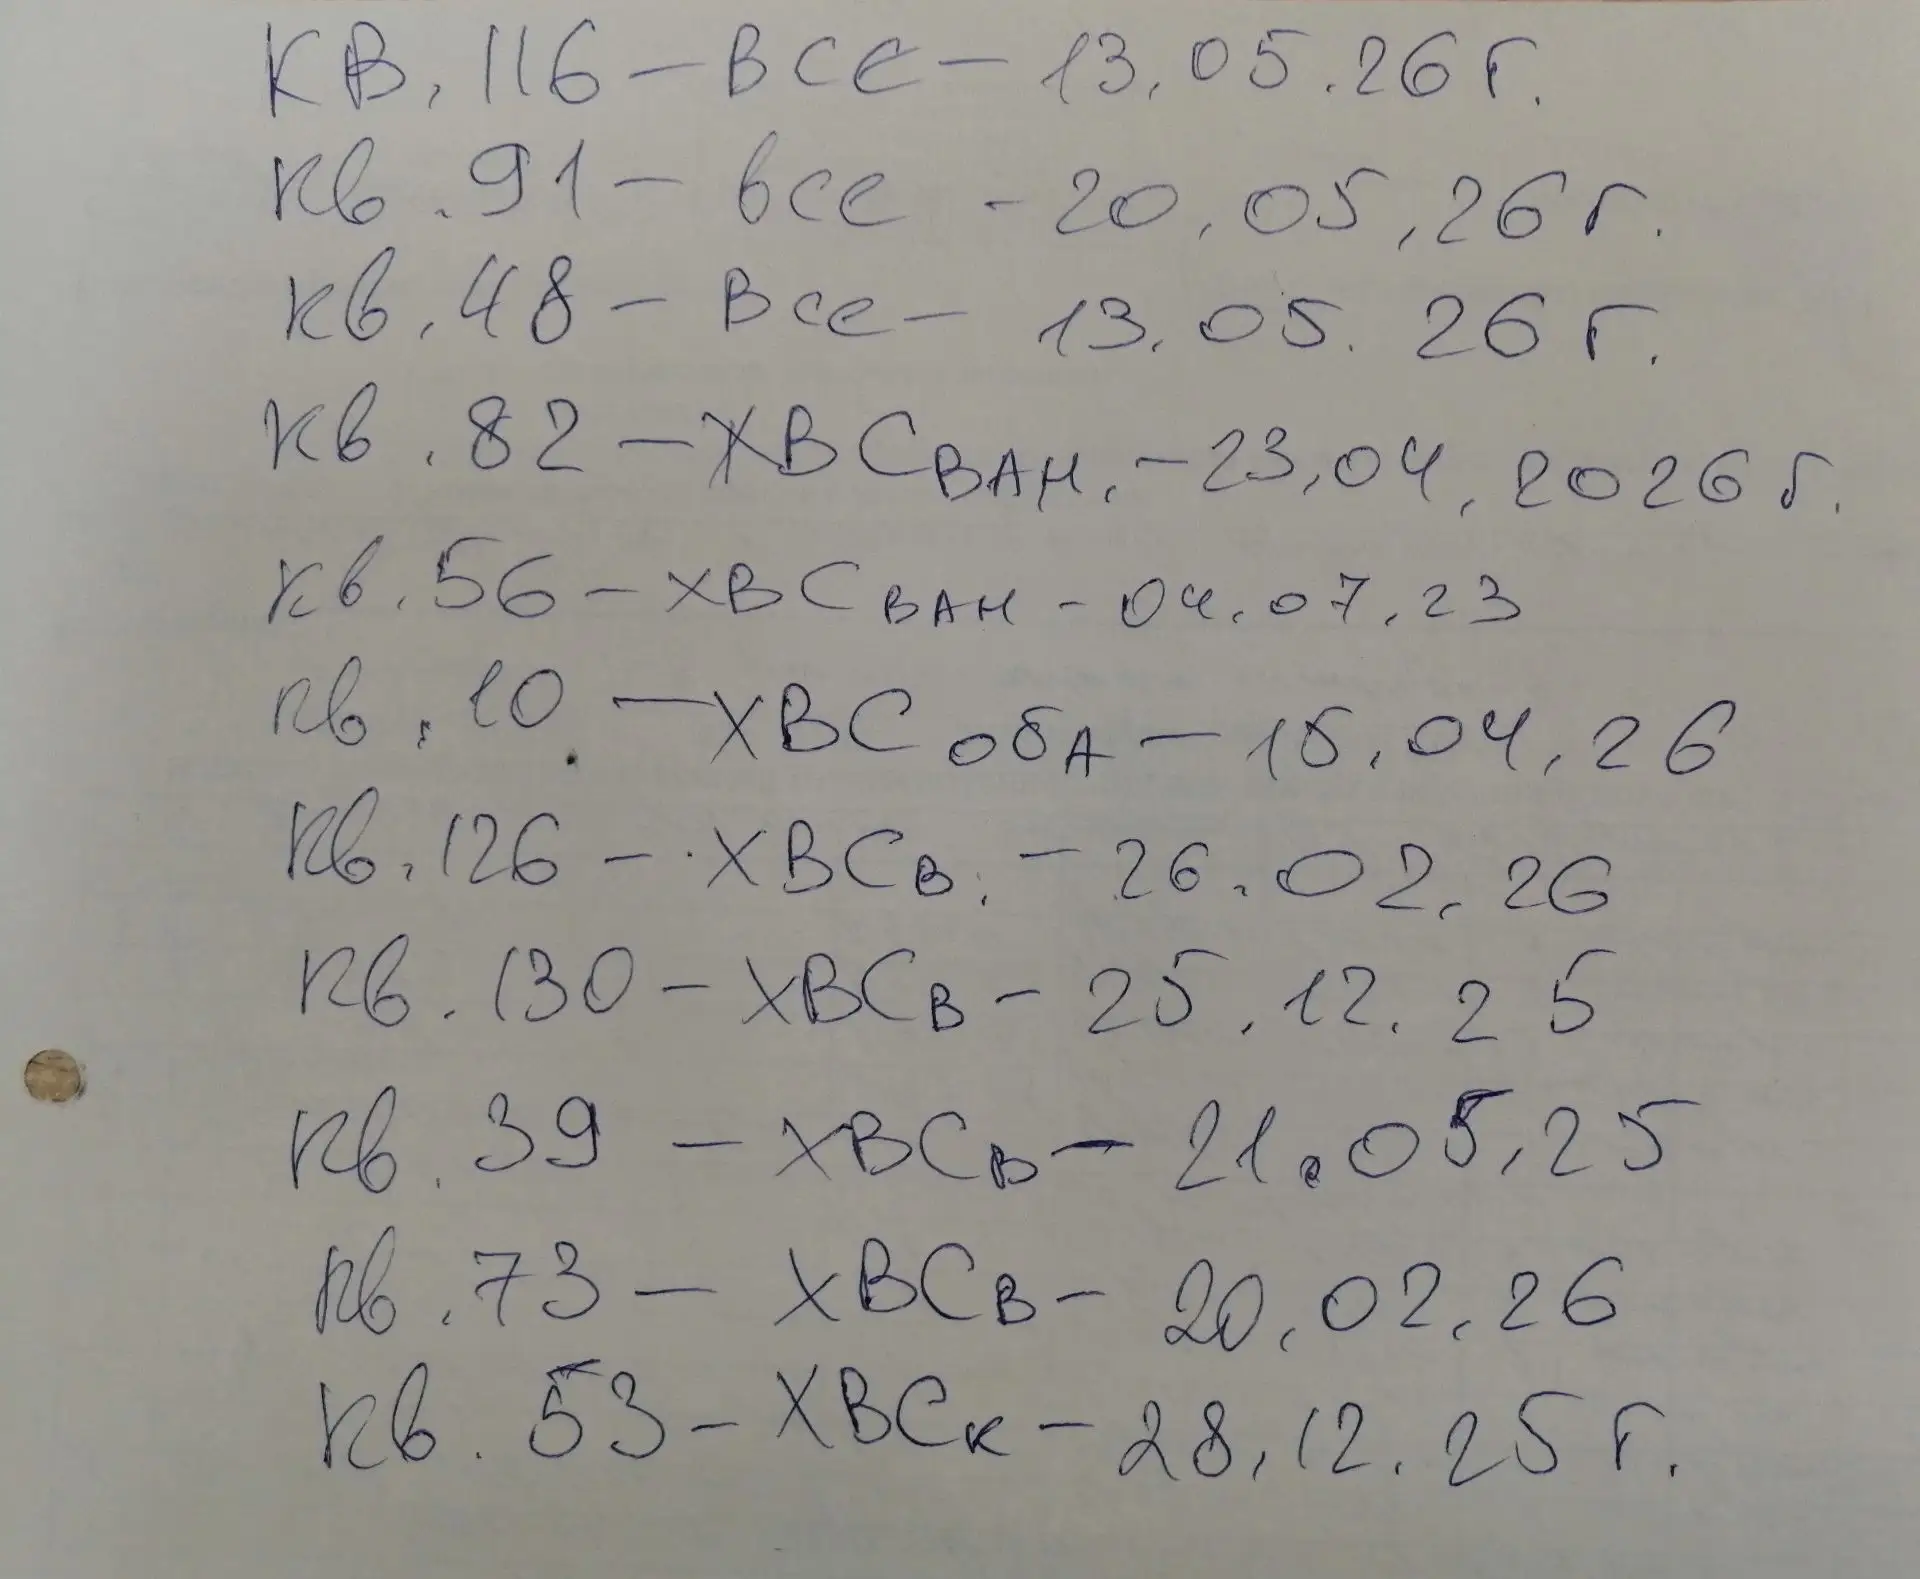 КВ. 116 – все – 13.05.26 г.
кв. 91 – все - 20.05.26 г.
кв. 48 – все – 13.05.26 г.
кв. 82 – ХВС ВАН. – 23.04.2026 г.
кв. 56 – ХВС ВАН - 04.07.23
кв. 10 – ХВС ОБА – 15.04.26
кв. 126 – ХВСв. – 26.02.26
кв. 130 – ХВСв – 25.12.25
кв. 39 – ХВСв – 21.05.25
кв. 73 – ХВСв – 20.02.26
кв. 53 – ХВСк – 28.12.25 г.